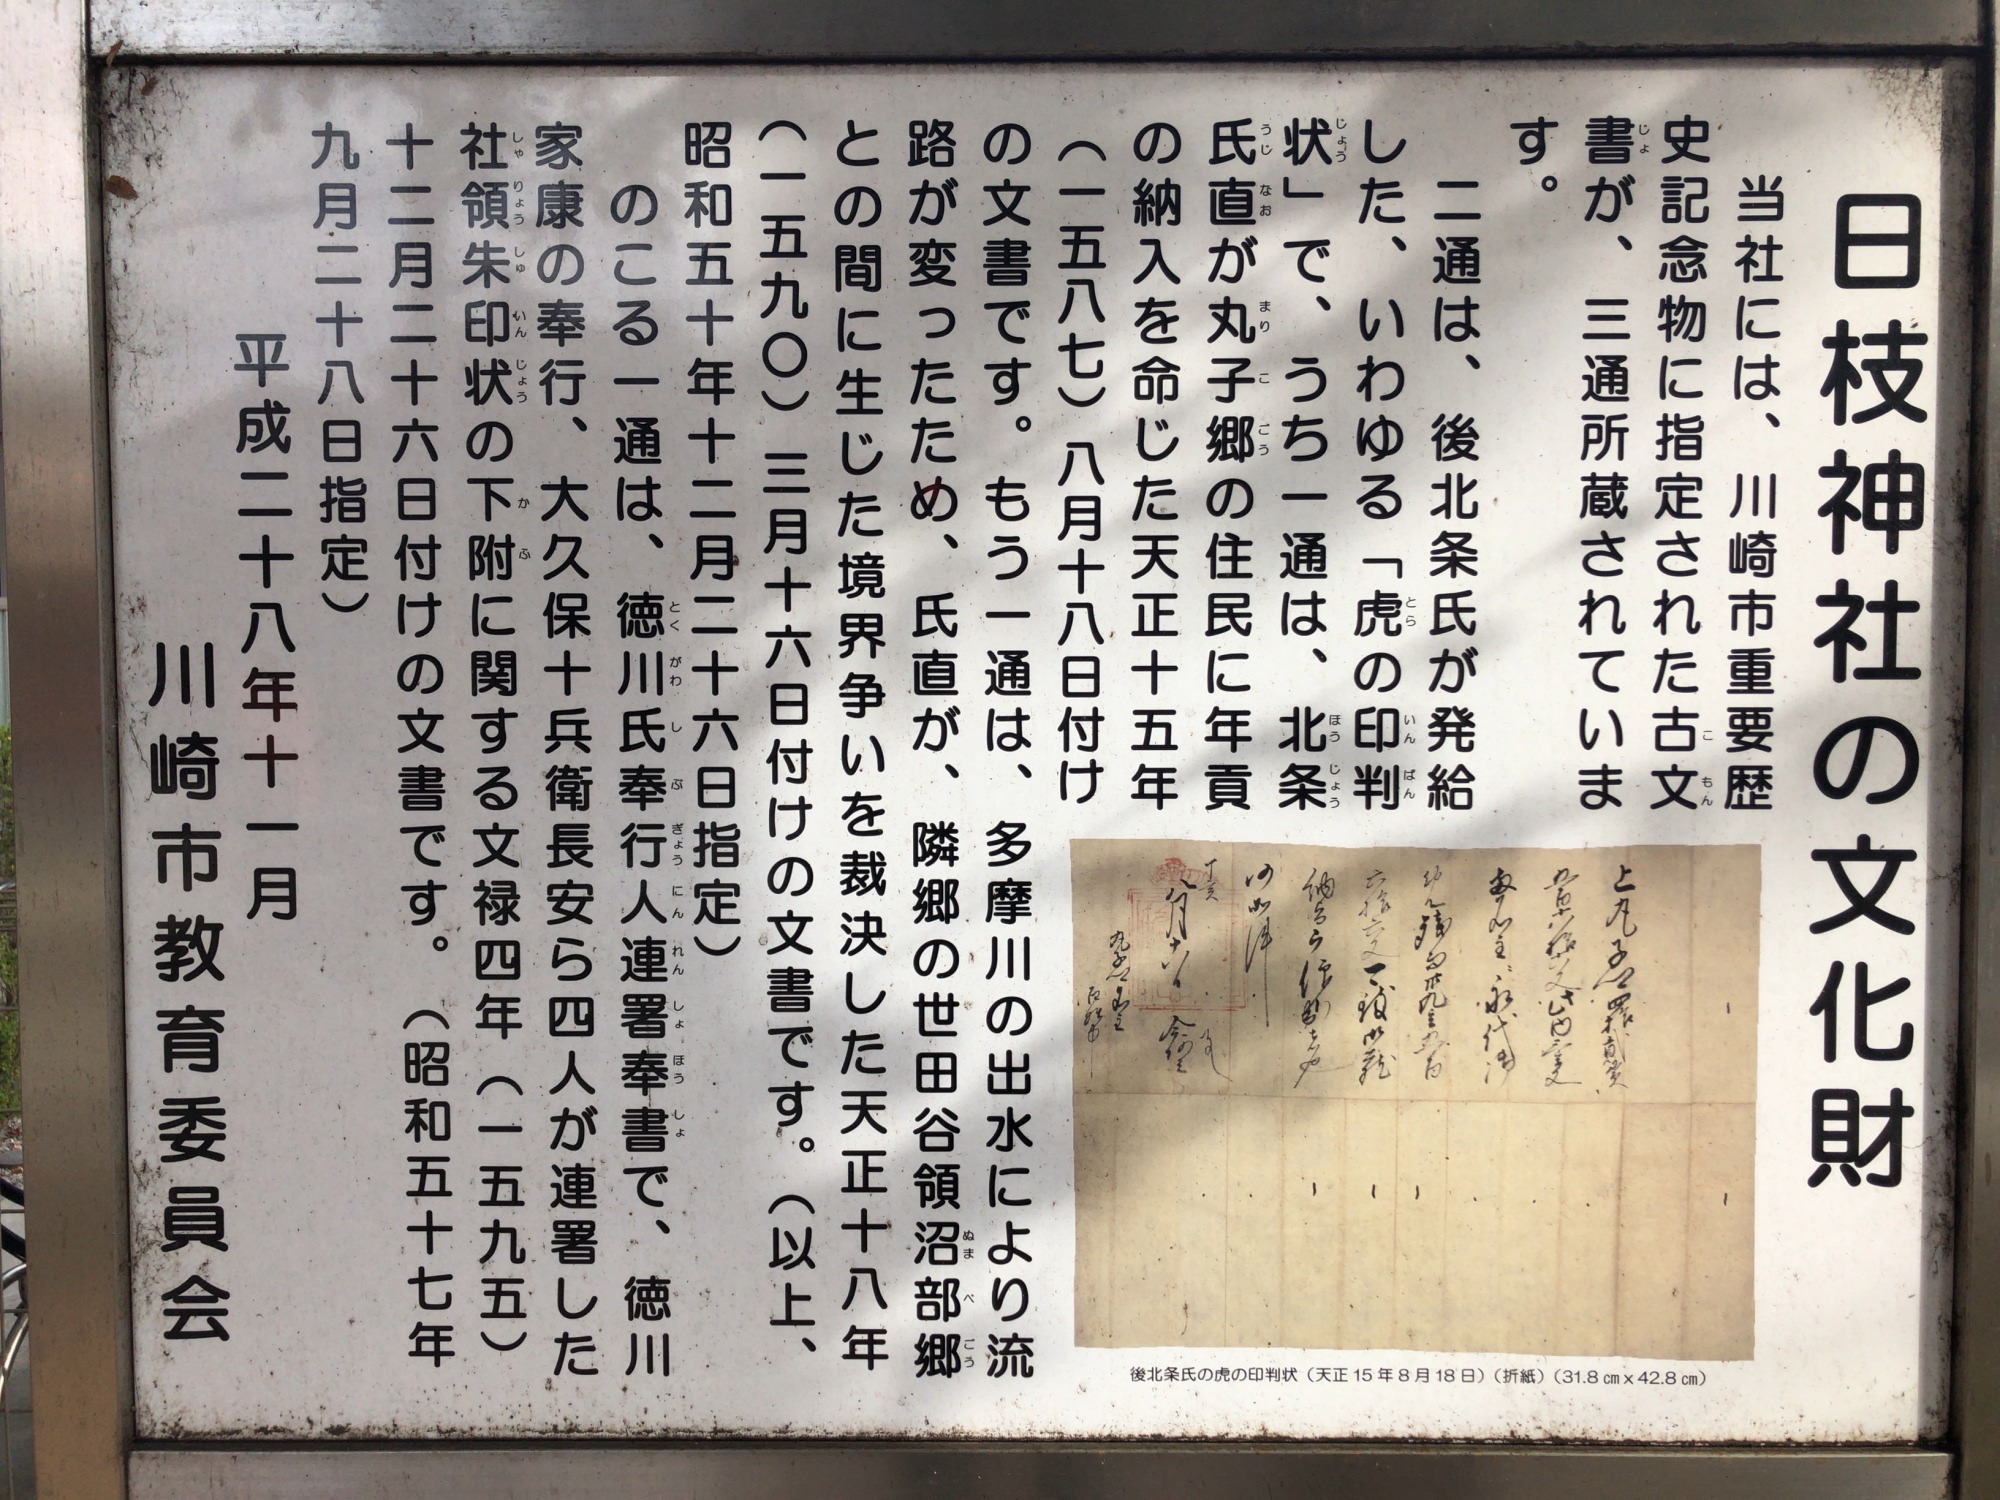 日枝神社の文化財
当社には、川崎市重要歴
史記念物に指定された古文
書が、三通所蔵されていま
す。
二通は、後北条氏が発給
した、いわゆる「虎の印判
状」で、うち一通は、北条
氏直が丸子郷の住民に年貢
の納入を命じた天正十五年
（一五八七）八月十八日付け
の文書です。もう一通は、多摩川の出水により流
路が変ったため、氏直が、隣郷の世田谷領沼部郷
との間に生じた境界争いを裁決した天正十八年
（一五九〇）三月十六日付けの文書です。（以上、
昭和五十年十二月二十六日指定）
のこる一通は、徳川氏奉行人連署奉書で、徳川
家康の奉行、大久保十兵衛長安ら四人が連署した
社領朱印状の下附に関する文禄四年（一五九五）
十二月二十六日付けの文書です。（昭和五十七年
九月二十八日指定）
平成二十八年十一月
川崎市教育委員会
後北条氏の虎の印判状（天正15年8月18日）（折紙）（31.8㎝x42.8㎝）